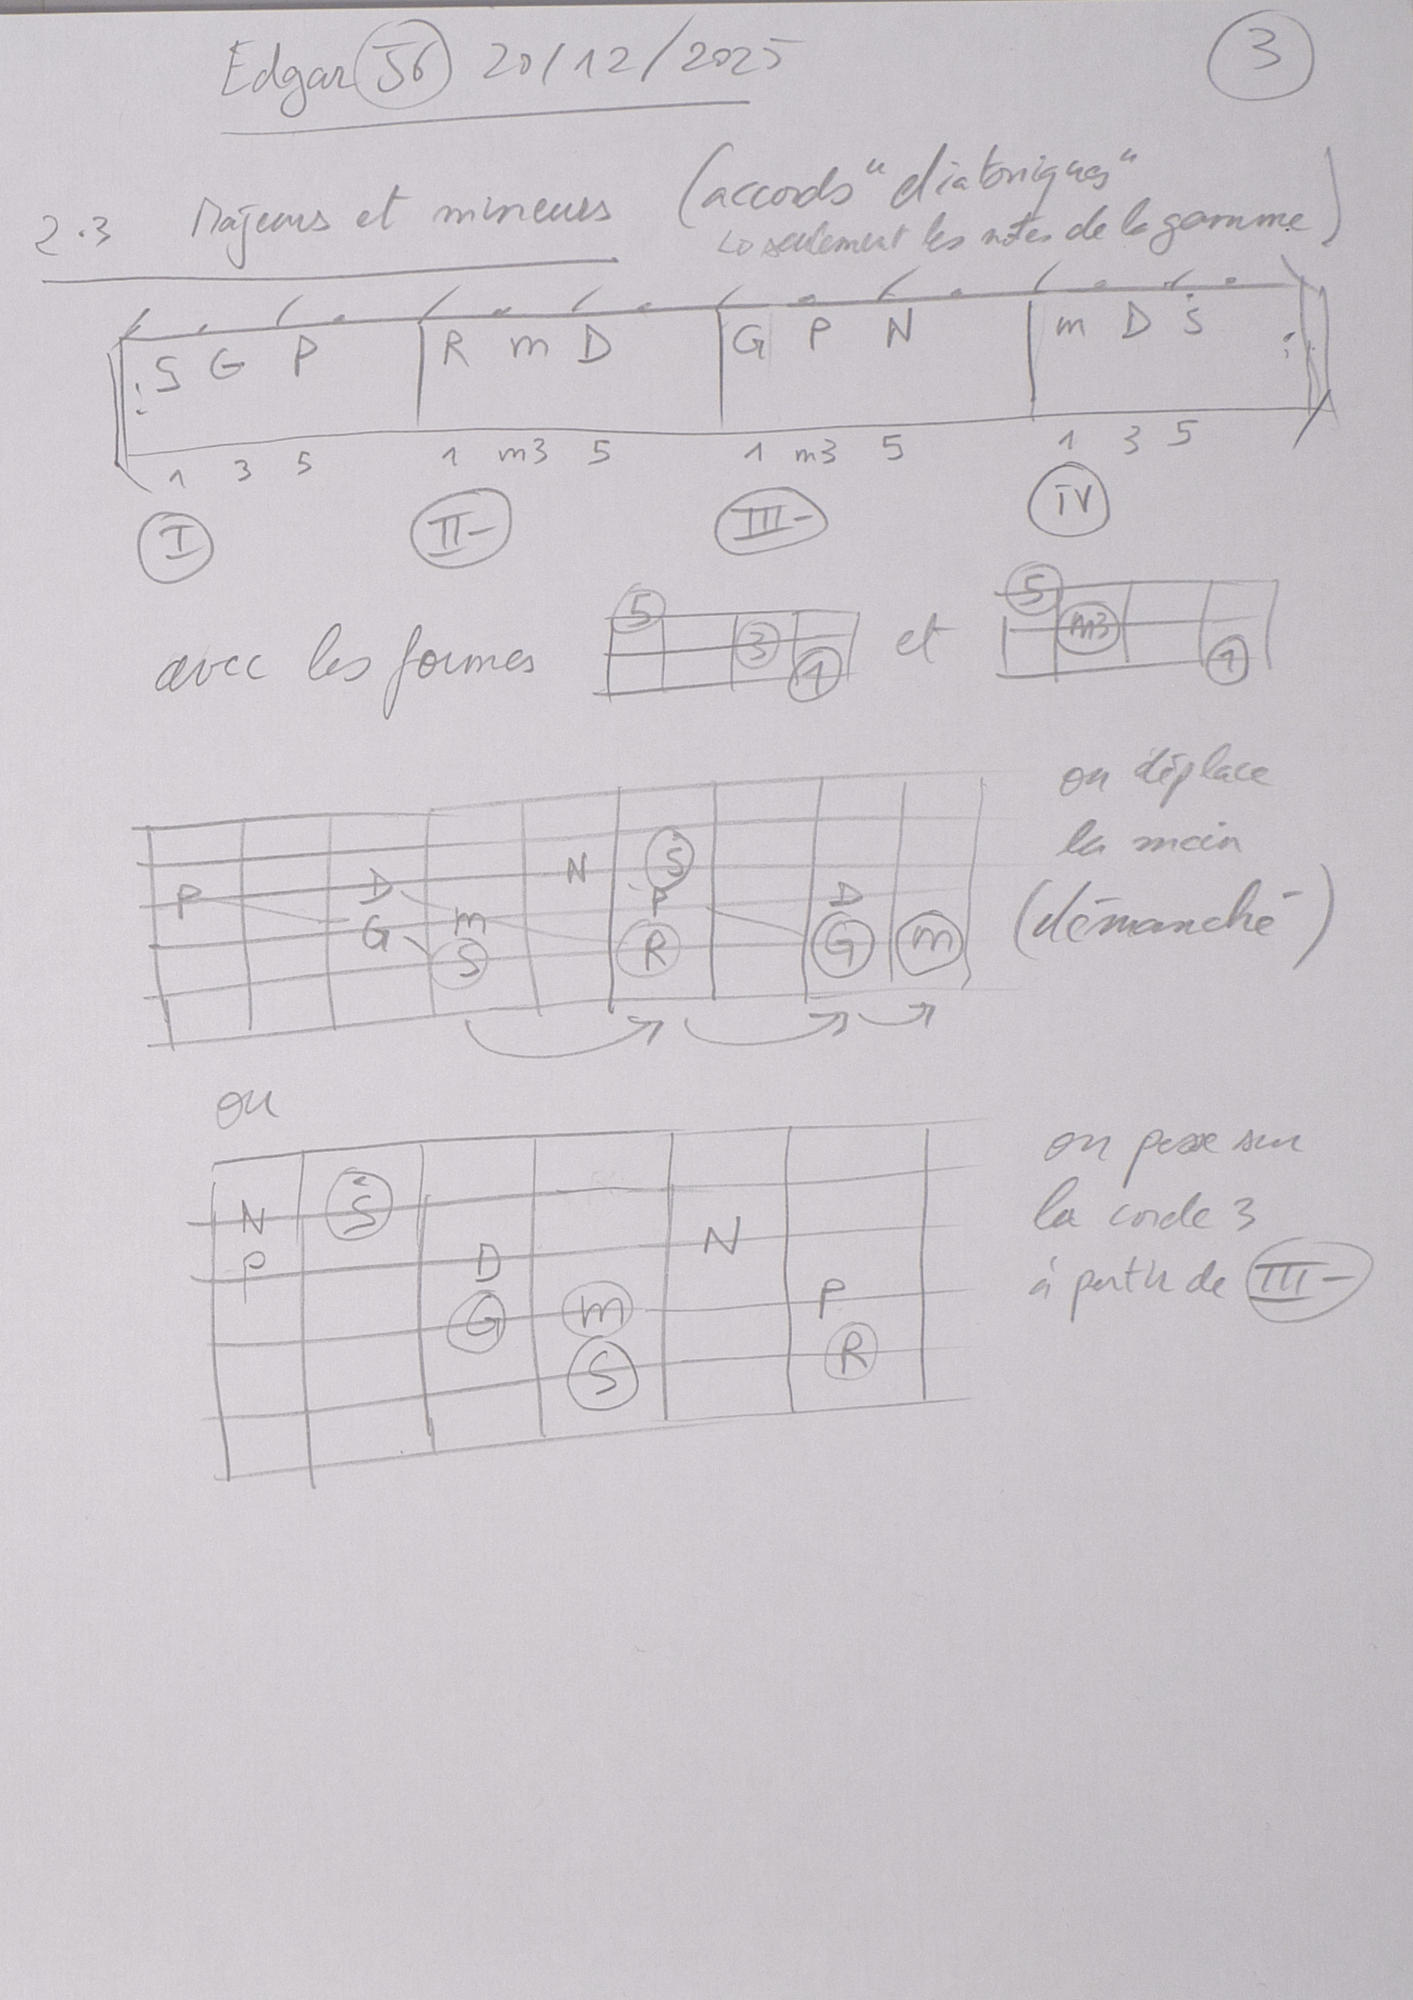 Edgar 56 20/12/2025
3
2.3 Majeurs et mineurs (accords "diatoniques"
↳ seulement les notes de la gamme)
S G P R m D G P N m D Ṡ
1 3 5 1 m3 5 1 m3 5 1 3 5
I II- III- IV
avec les formes 5 3 1 et 5 m3 1
on déplace
la main
(démanché)
N Ṡ
P D P D
G m R G m
S
ou
on passe sur
la corde 3
à partir de III-
N Ṡ
P D N
G m P
S R